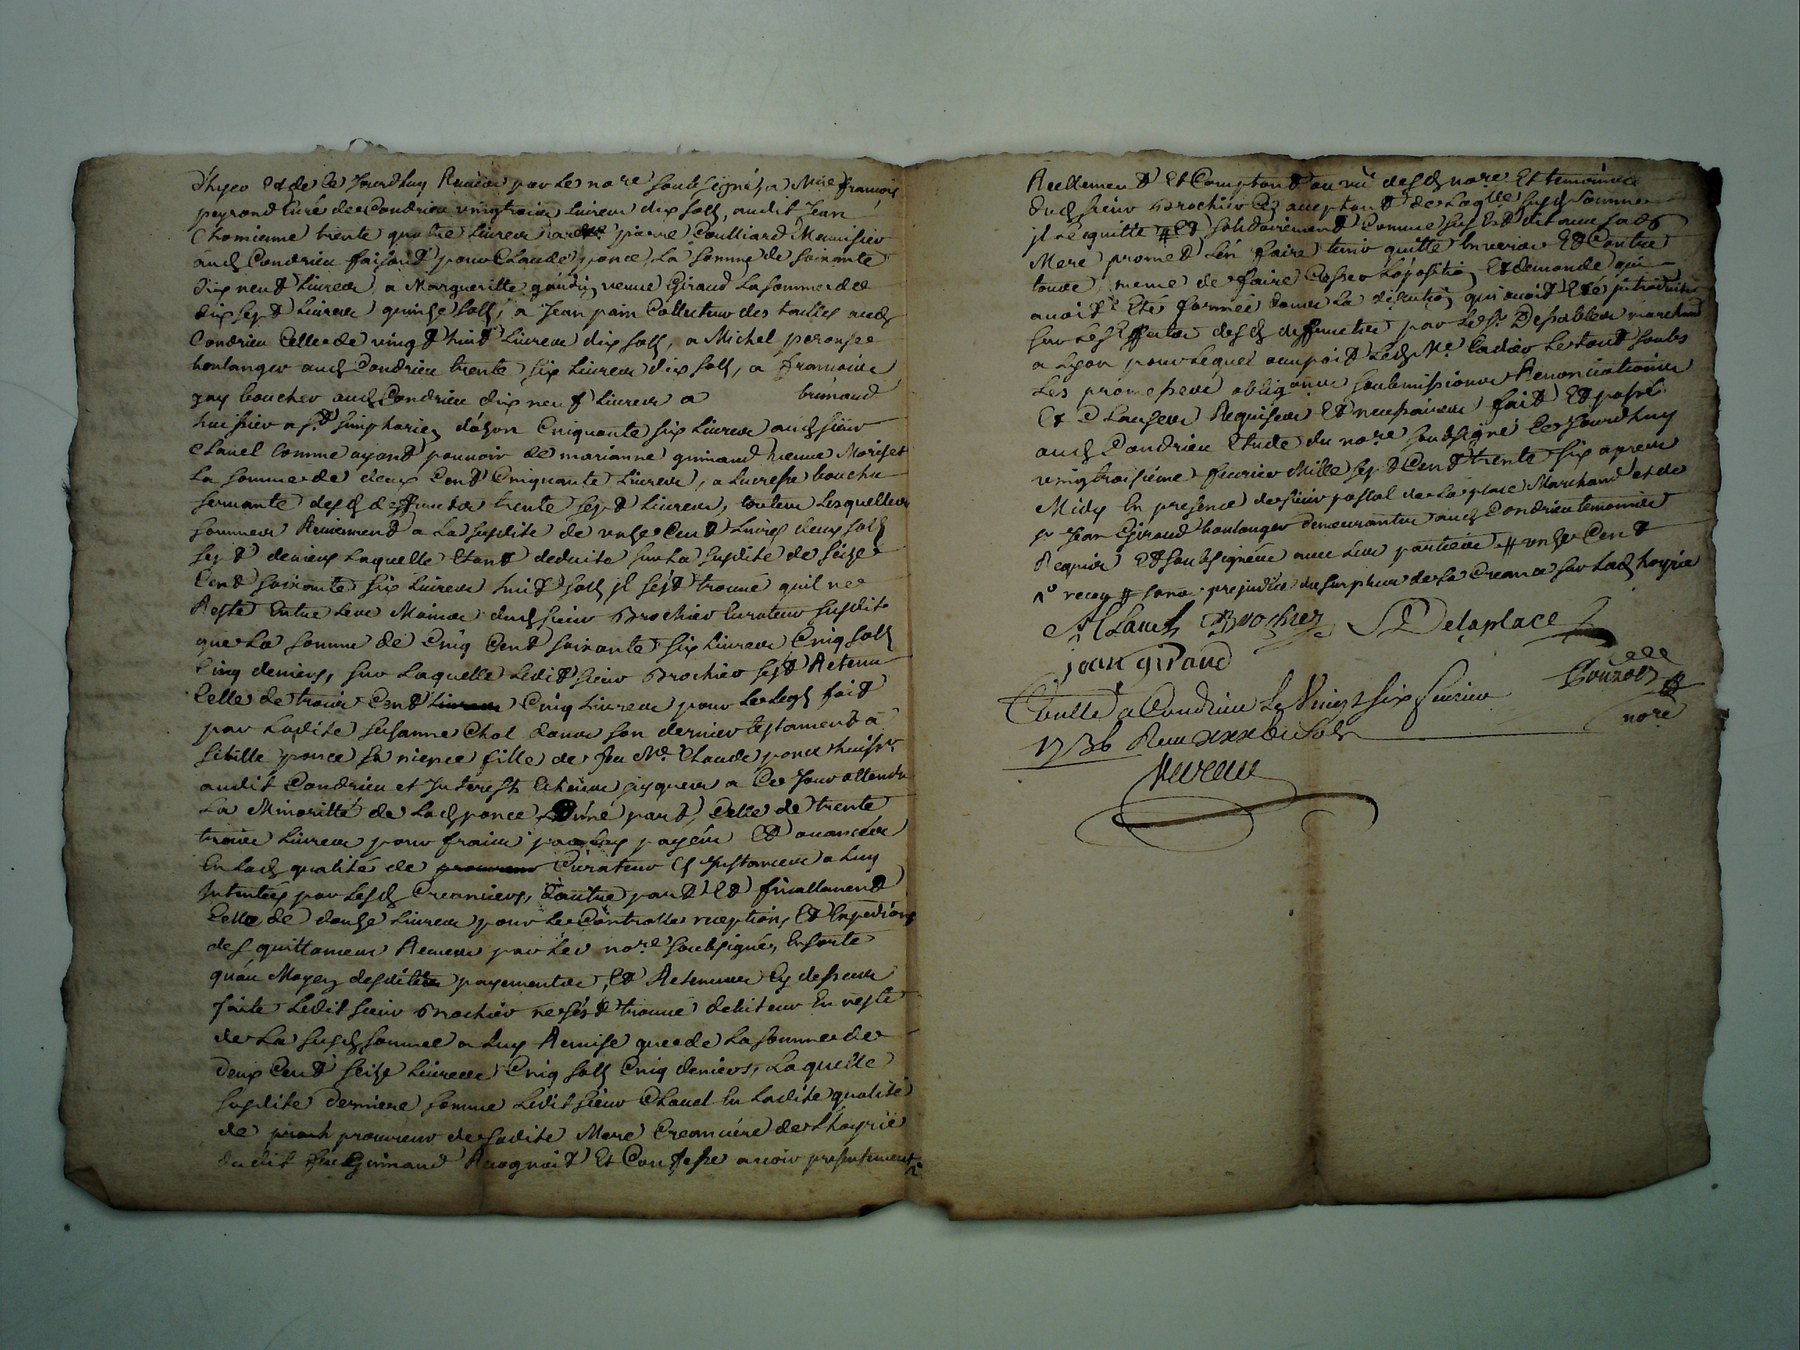 d'hyer et de ce Jourdhuy Receue par le no.re soubsigné, a M.re françois
peyrond Curé de Condrieu vingt trois Livres dix sols, audit Jean
Chomienne trente quatre Livres, a pierre Coulliard Menuisier
aud. Condrieu faisant pour Claude ponce, La somme de soixante
dix neuf Livres, a Marguerite veuve Giraud La somme de
dix sept Livres quinze sols, a Jean pain Collecteur des tailles aud.
Condrieu Celle de vingt huit Livres dix sols, a Michel perouse
boulanger aud. Condrieu trente six Livres dix sols, a francois
gay boucher aud. Condrieu dix neuf Livres a brunaud
huissier a s.t simphorien d'ozon Cinquante six Livres aud. sieur
Clauel Comme ayant pouuoir de marianne guinaud
La somme de deux Cent Cinquante Liures, a Lucresse bouchu
seruante desd. deffuncts trente sept Livres, toutes Lesquelles
sommes Reuiennent a La susdite de unze Cent Livres deux sols
sept deniers Laquelle Etant deduite sur La susdite de seize
Cent soixante six Livres huit sols il s'est trouué quil ne
Reste Entre Les Mains dud. sieur Brochier Curateur susdit
que La somme de Cinq Cent soixante six Livres Cinq sols
Cinq deniers, sur Laquelle Ledit sieur Brochier s'est Retenu
Celle de trois Cent Livres Cinq Livres pour Le Legs fait
par Ladite susanne Chol dans son dernier testament a
sibille ponce sa niepce fille de feu M.e Claude ponce huiss.r
audit Condrieu et Interests Echeus jusques a Ce Jour attendu
La Minorité de Lad. ponce, D'une part, Celle de trente
trois Livres pour frais par Luy payés Et auancés
En Lad. qualité de Curateur Es Instances a Luy
Intentées par Lesd. Creanciers, d'autre part Et finallement
Celle de douze Livres pour Le Controlle, reception, Et Expedition
des quittances Receues par Le no.re soubsigné, Ensorte
qu'au Moyen desdits payements, Et Retenues Cy dessus
faite Ledit sieur Brochier ne s'est trouué debiteur En reste
de La susd. somme a Luy Remise que de La somme de
Deux Cent seize Livres Cinq sols Cinq deniers, Laquelle
susdite derniere somme Ledit sieur Clauel En Ladite qualité
de procureur de sadite Mere Creanciere de L'hoyrie
dudit feu Guinaud Recognoit Et Confesse auoir presentement
Reellement Et Comptant au vû desd. no.re Et temoins
dud. sieur Brochier Et acceptant de Laq.lle susd. somme
il l'e quitte # Et solidairement Comme sus Est dit auec sad.
Mere promet L'en faire tenir quitte Enuers Et Contre
tous, meme de faire Cesser L'oposition Et demande qui
auoit Eté formée dans La discution qui auoit Eté introduite
sur Les Effets desd. deffuncts par Le S.r Desablon marchand
a Lyon pour Lequel occupoit Led. M.e Cadier Le tout soubs
Les promesses obligãons soubmissions Renonciations
Et Clauses Requises Et necessaires fait Et passé
aud. Condrieu Etude du no.re soubsigné Ce Jourdhuy
vingt troisième feurier Mille sept Cent trente six apres
Midy En presence de sieur pascal de La place Marchand et de
s.r Jean Giraud boulanger demeurants aud. Condrieu temoins
Requis Et soubsignés auec Les parties # unze Cent
n.o recu # sans prejudice du surplus de sa Creance sur Lad. hoyrie
Clauel Brochier Delaplace
jean giraud
Controllé a Condrieu Le Vingt six feurier
1736 Receu xxx
no.re